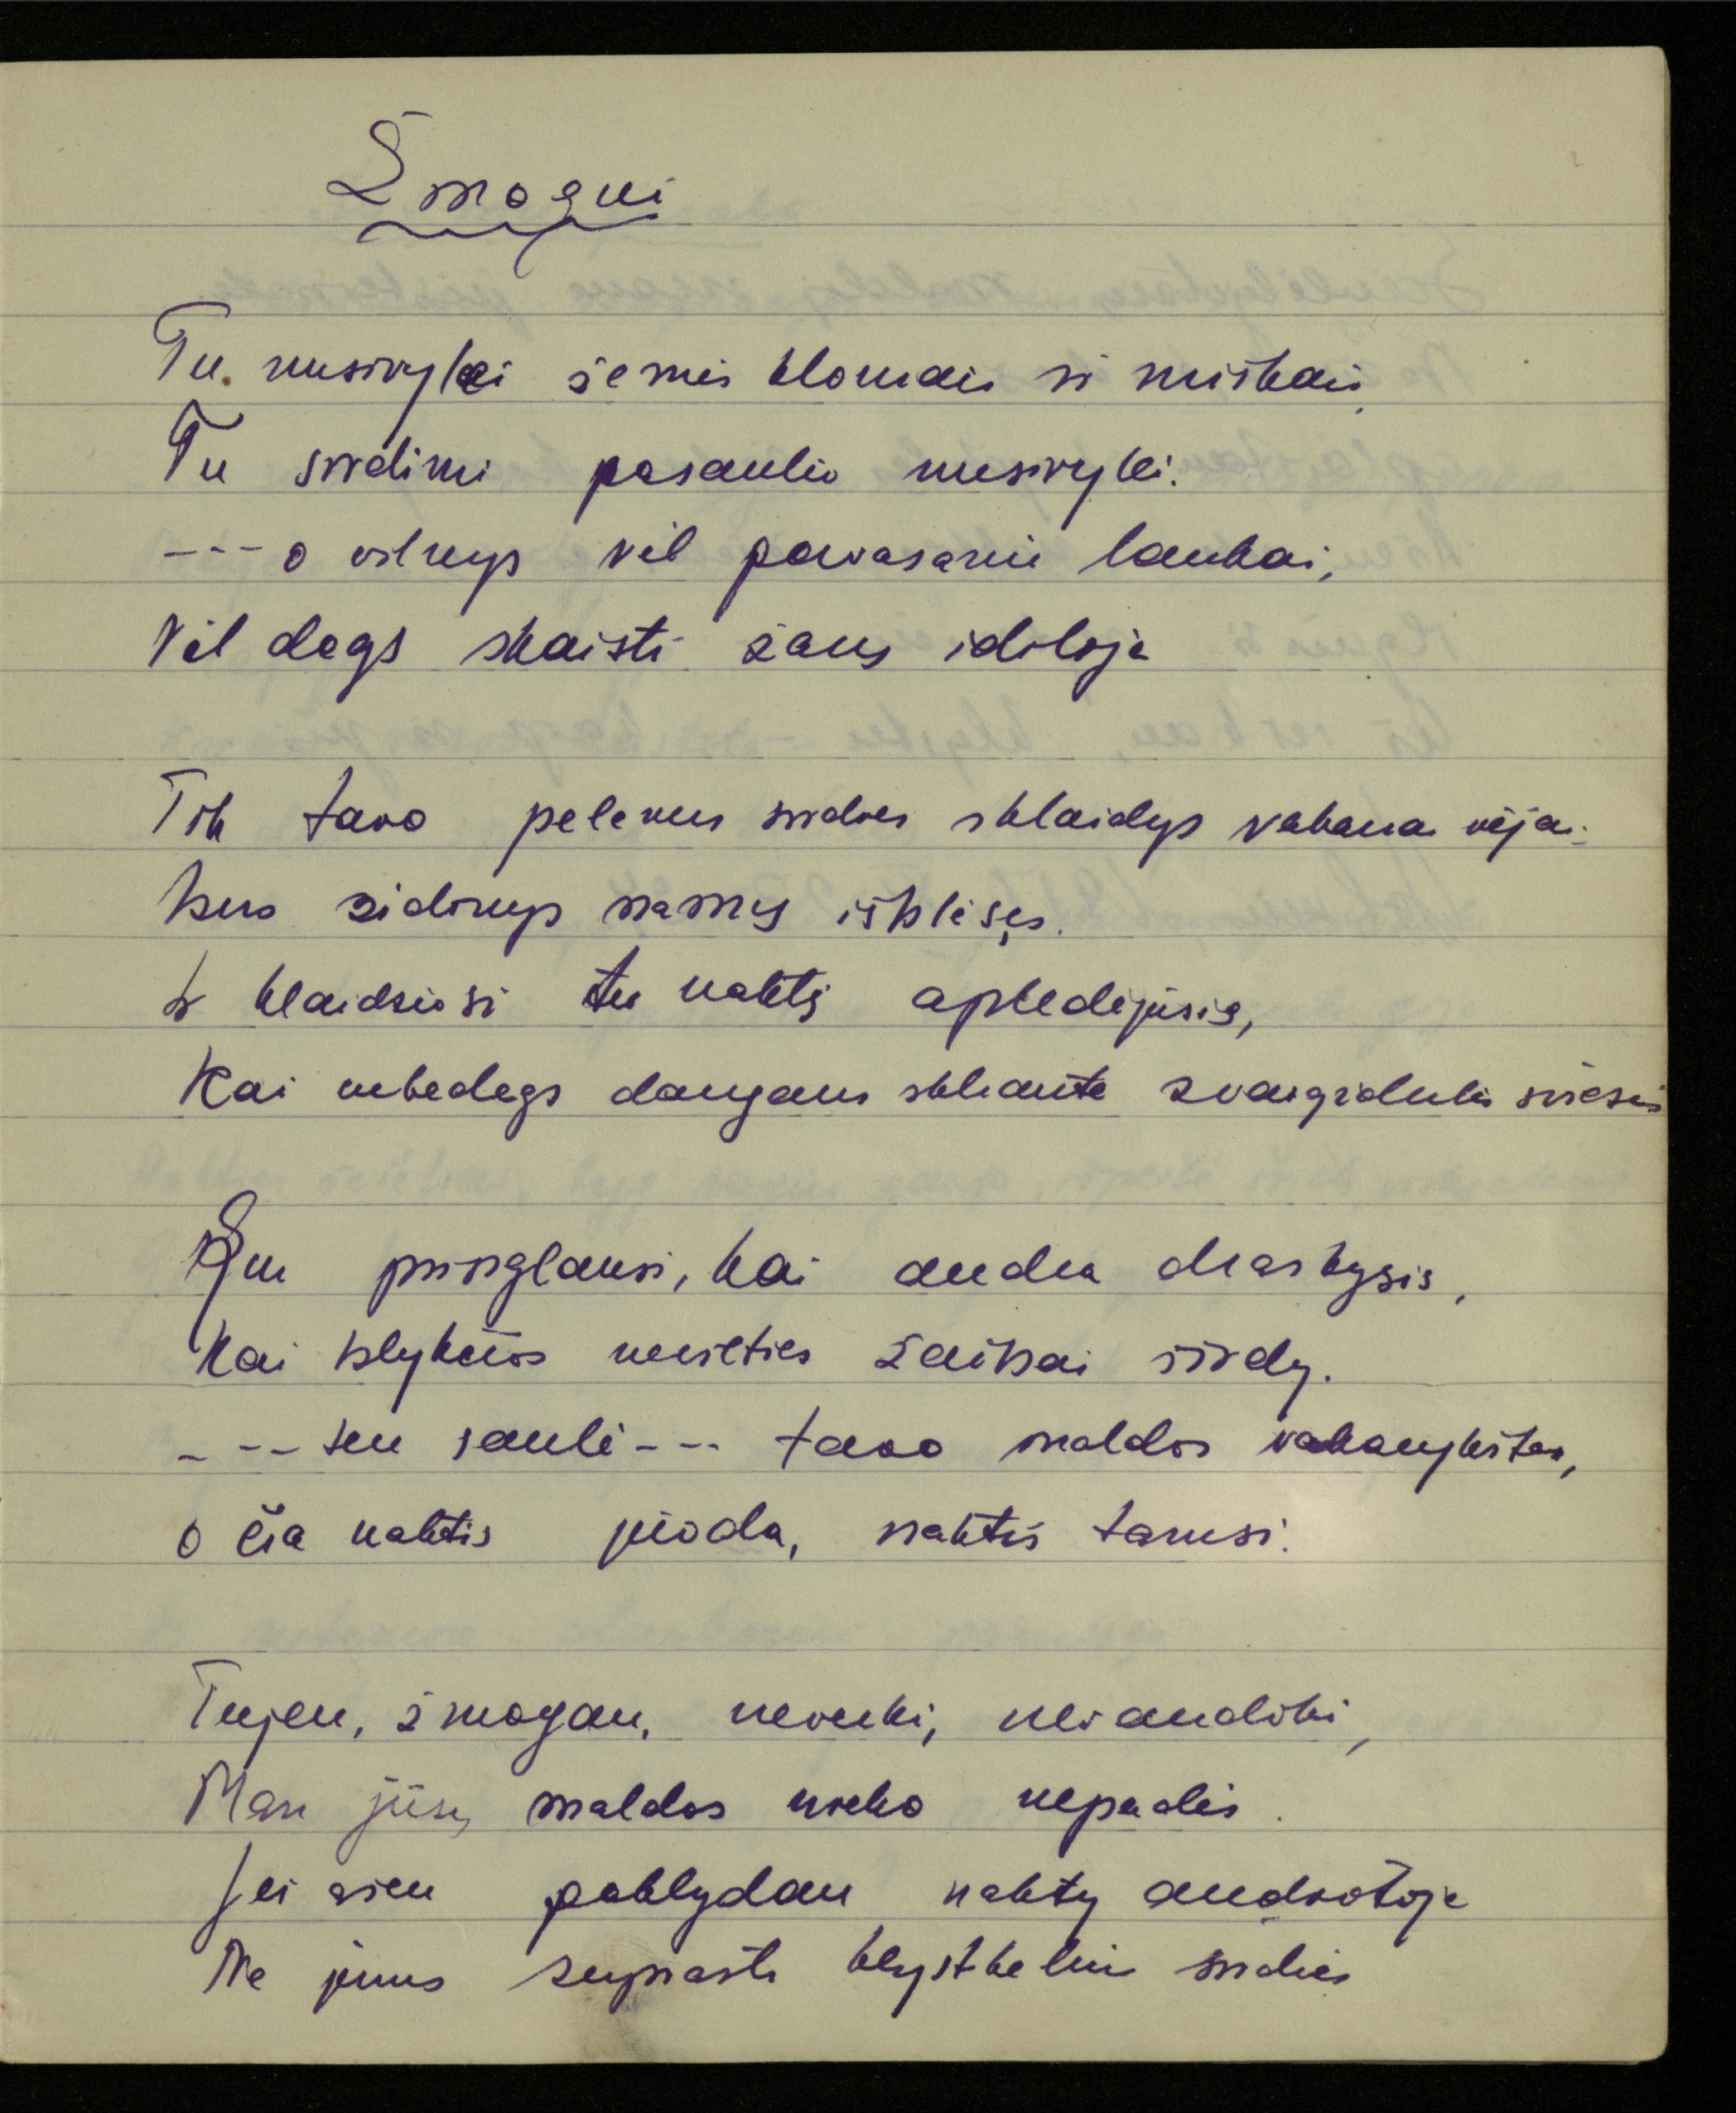 Žmogui
Tu nusivylei žemės klonais ir miškais,
Tu širdimi pasaulio nusivylei.
--- o vilnys vėl pavasario laukai,
Vėl degs skaisti žaros idiloja
Tik tavo pelenus širdies sklaidys vakaro vėjai.
Kurs židinys namų išblėsęs.
Ir klaidžiosi tu naktį apledėjusią,
Kai nebedegs dangaus skliaute žvaigždutės šviesios
Kur prisiglausi, kai audra draskysis,
Kai blykčios nevilties žaibai širdy.
--- ten saulė --- tavo maldos vakarykštės,
o čia naktis juoda, naktis tamsi.
Tujen, žmogau, neverki, nevandoki,
Man jūsų maldos nieko nepadės.
Jei asen paklydau naktų audrotoje
Ne jums suprasti klystkelių širdies